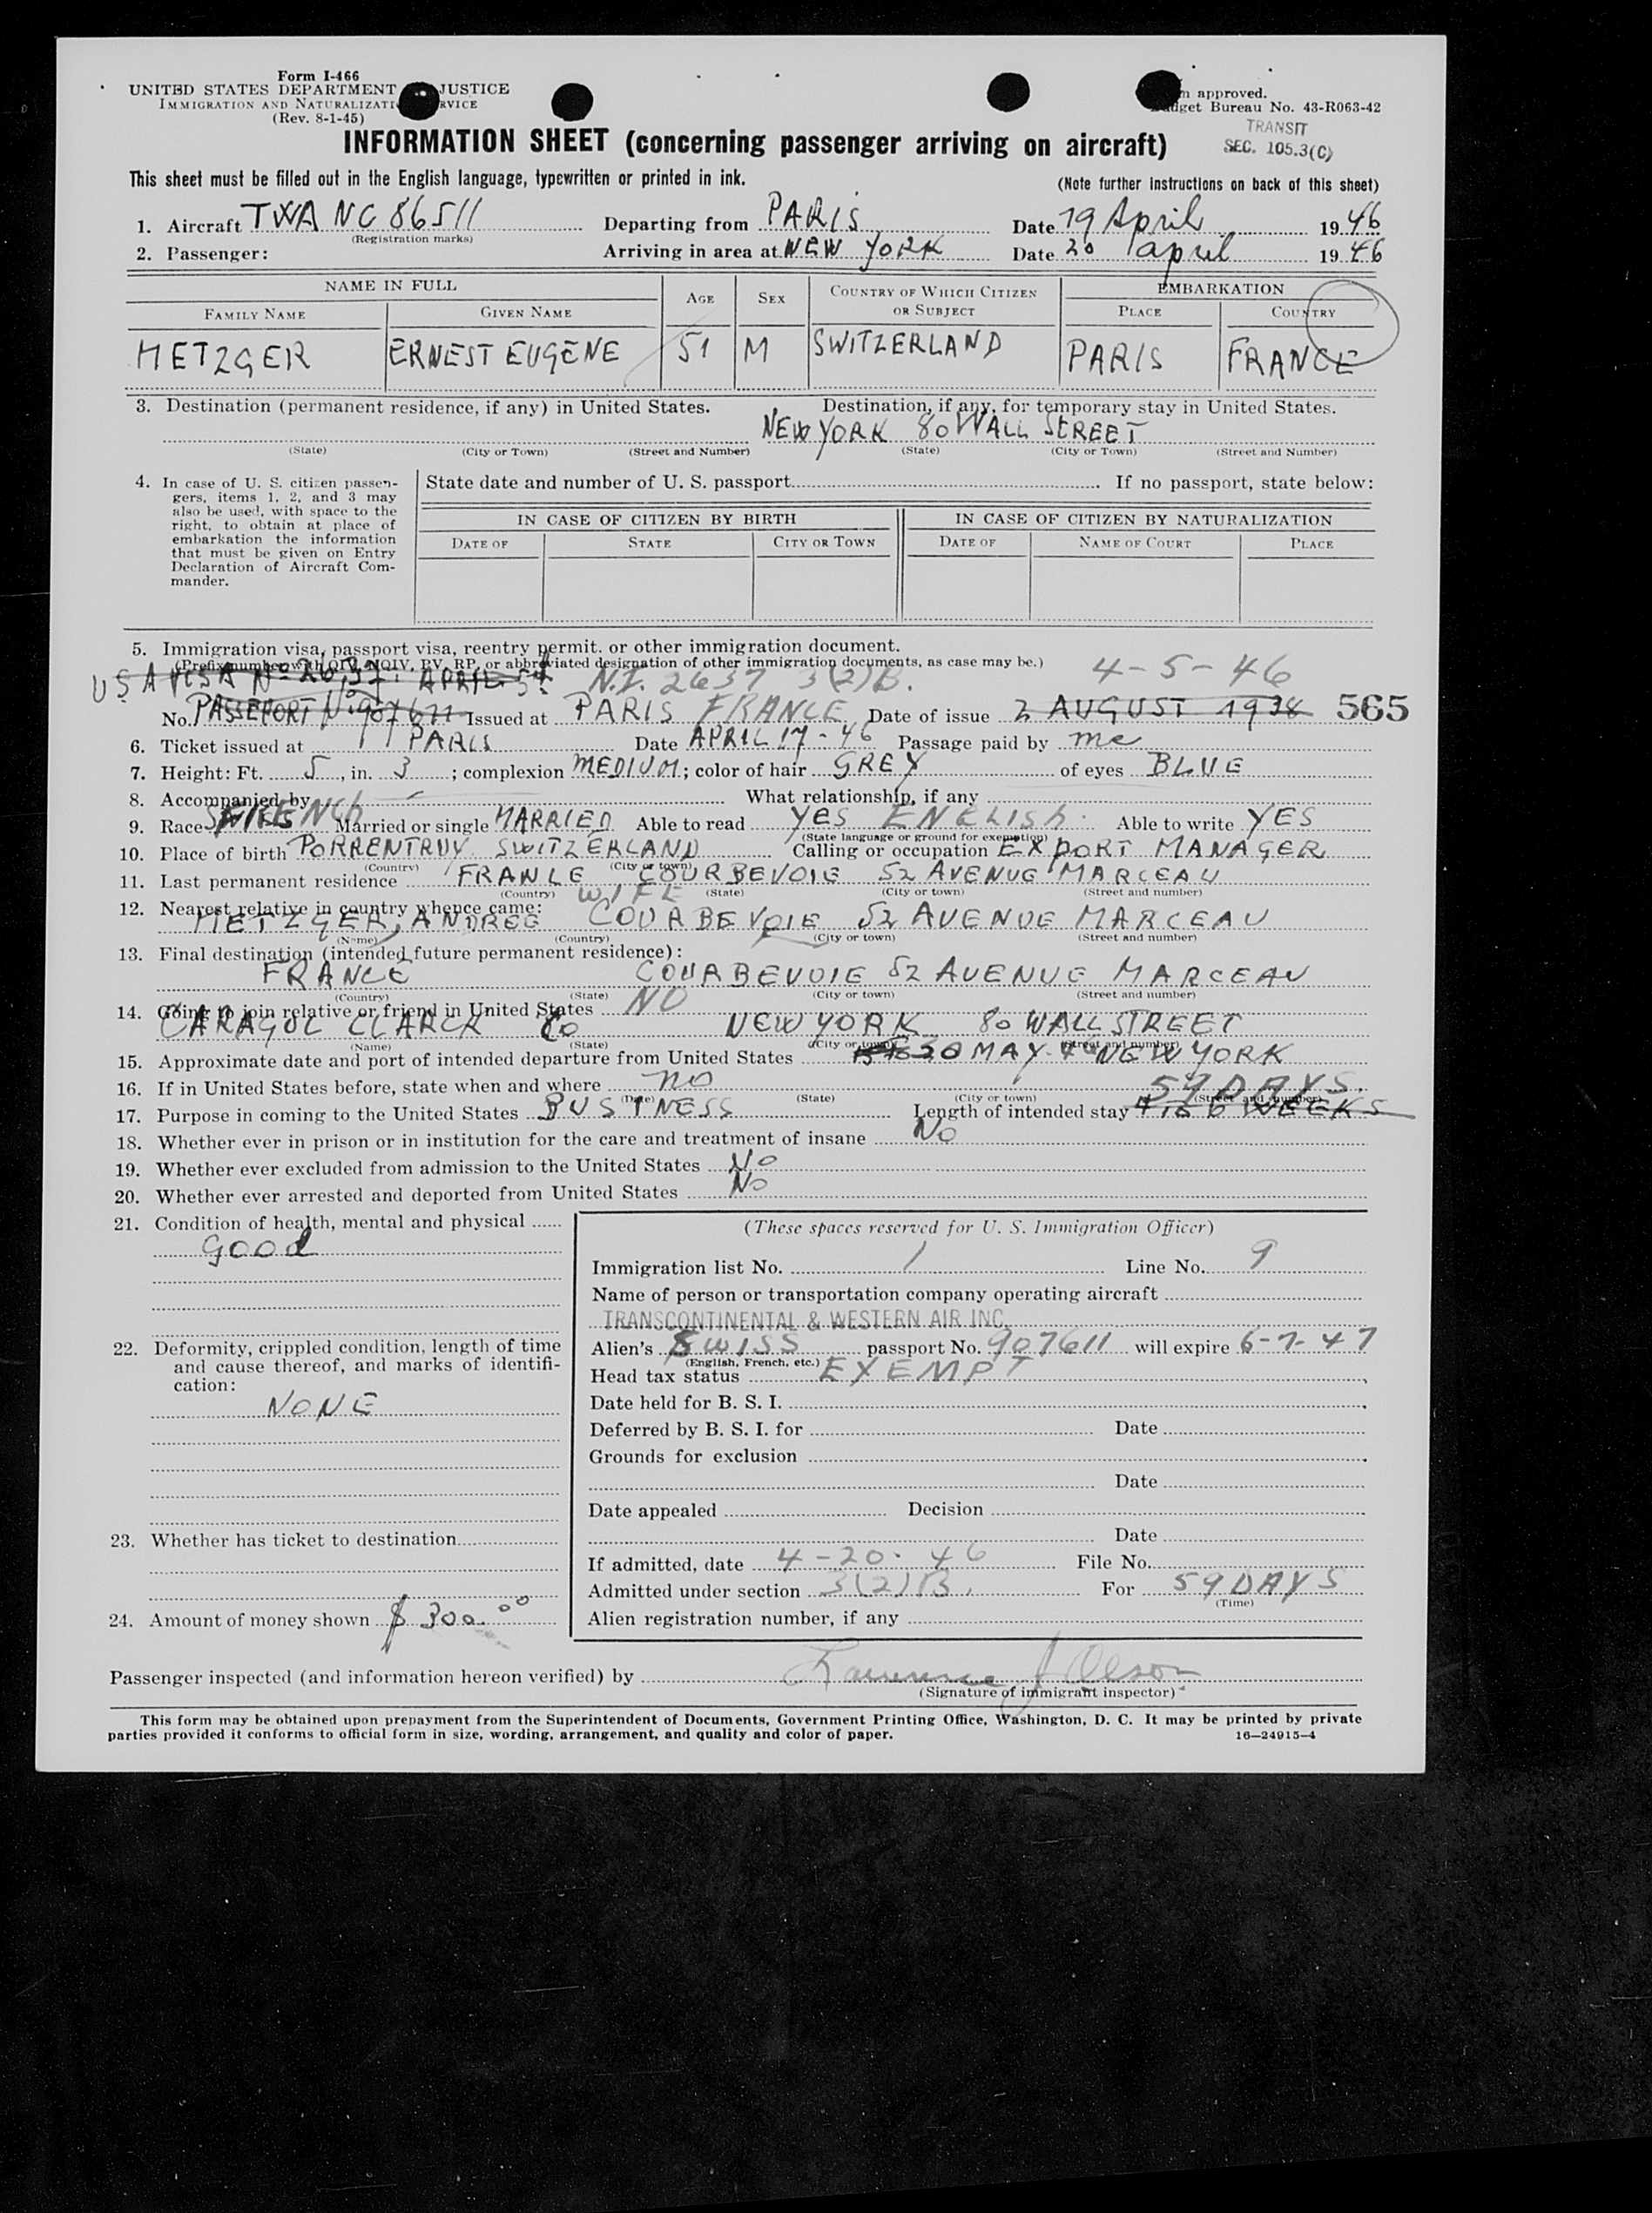 Form I-466
UNITED STATES DEPARTMENT JUSTICE
IMMIGRATION AND NATURALIZATI RVICE
(Rev. 8-1-45)
n approved.
dget Bureau No. 43-R063-42
TRANSIT
SEC. 105.3(C)
INFORMATION SHEET (concerning passenger arriving on aircraft)
This sheet must be filled out in the English language, typewritten or printed in ink.
(Note further instructions on back of this sheet)
1. Aircraft TWA NC 86511 Departing from PARIS Date 19 April 1946
(Registration marks)
2. Passenger: Arriving in area at NEW YORK Date 20 april 1946
NAME IN FULL AGE SEX COUNTRY OF WHICH CITIZEN OR SUBJECT EMBARKATION
FAMILY NAME GIVEN NAME PLACE COUNTRY
METZGER ERNEST EUGENE 51 M SWITZERLAND PARIS FRANCE
3. Destination (permanent residence, if any) in United States. Destination, if any, for temporary stay in United States.
NEW YORK 80 WALL STREET
(State) (City or Town) (Street and Number) (State) (City or Town) (Street and Number)
4. In case of U. S. citizen passengers, items 1, 2, and 3 may also be used, with space to the right, to obtain at place of embarkation the information that must be given on Entry Declaration of Aircraft Commander.
State date and number of U. S. passport If no passport, state below:
IN CASE OF CITIZEN BY BIRTH IN CASE OF CITIZEN BY NATURALIZATION
DATE OF STATE CITY OR TOWN DATE OF NAME OF COURT PLACE
5. Immigration visa, passport visa, reentry permit, or other immigration document.
(Prefix number with QIV, NQIV, PV, RP, or abbreviated designation of other immigration documents, as case may be.)
USA VISA No 2637 APRIL 5th N.I. 2637 3(2)B. 4-5-46
No. PASSEPORT No 907611 Issued at PARIS FRANCE Date of issue 2 AUGUST 1938 565
6. Ticket issued at PARIS Date APRIL 17-46 Passage paid by me
7. Height: Ft. 5, in. 3; complexion MEDIUM; color of hair GREY of eyes BLUE
8. Accompanied by What relationship, if any
9. Race FRENCH Married or single MARRIED Able to read yes ENGLISH Able to write YES
(State language or ground for exemption)
10. Place of birth PORRENTRUY SWITZERLAND Calling or occupation EXPORT MANAGER
(Country) (City or town)
11. Last permanent residence FRANCE COURBEVOIE 52 AVENUE MARCEAU
(Country) (State) (City or town) (Street and number)
12. Nearest relative in country whence came: WIFE
METZGER, ANDREE COURBEVOIE 52 AVENUE MARCEAU
(Name) (Country) (City or town) (Street and number)
13. Final destination (intended future permanent residence):
FRANCE COURBEVOIE 52 AVENUE MARCEAU
(Country) (State) (City or town) (Street and number)
14. Going to join relative or friend in United States NO
CARAGOL CLARCK Co NEW YORK 80 WALL STREET
(Name) (State) (City or town) (Street and number)
15. Approximate date and port of intended departure from United States 30 MAY NEW YORK
16. If in United States before, state when and where no
(Date) (State) (City or town) (Street and number)
17. Purpose in coming to the United States BUSINESS Length of intended stay 4 to 6 WEEKS 59 DAYS.
18. Whether ever in prison or in institution for the care and treatment of insane No
19. Whether ever excluded from admission to the United States No
20. Whether ever arrested and deported from United States No
21. Condition of health, mental and physical
good
22. Deformity, crippled condition, length of time and cause thereof, and marks of identification:
NONE
23. Whether has ticket to destination
24. Amount of money shown $ 300.00
(These spaces reserved for U. S. Immigration Officer)
Immigration list No. 1 Line No. 9
Name of person or transportation company operating aircraft
TRANSCONTINENTAL & WESTERN AIR INC.
Alien's SWISS passport No. 907611 will expire 6-7-47
(English, French, etc.)
Head tax status EXEMPT
Date held for B. S. I.
Deferred by B. S. I. for Date
Grounds for exclusion
Date
Date appealed Decision
Date
If admitted, date 4-20-46 File No.
Admitted under section 3(2)B. For 59 DAYS
(Time)
Alien registration number, if any
Passenger inspected (and information hereon verified) by Lawrence J Olson
(Signature of immigrant inspector)
This form may be obtained upon prepayment from the Superintendent of Documents, Government Printing Office, Washington, D. C. It may be printed by private
parties provided it conforms to official form in size, wording, arrangement, and quality and color of paper.
16—24915-4